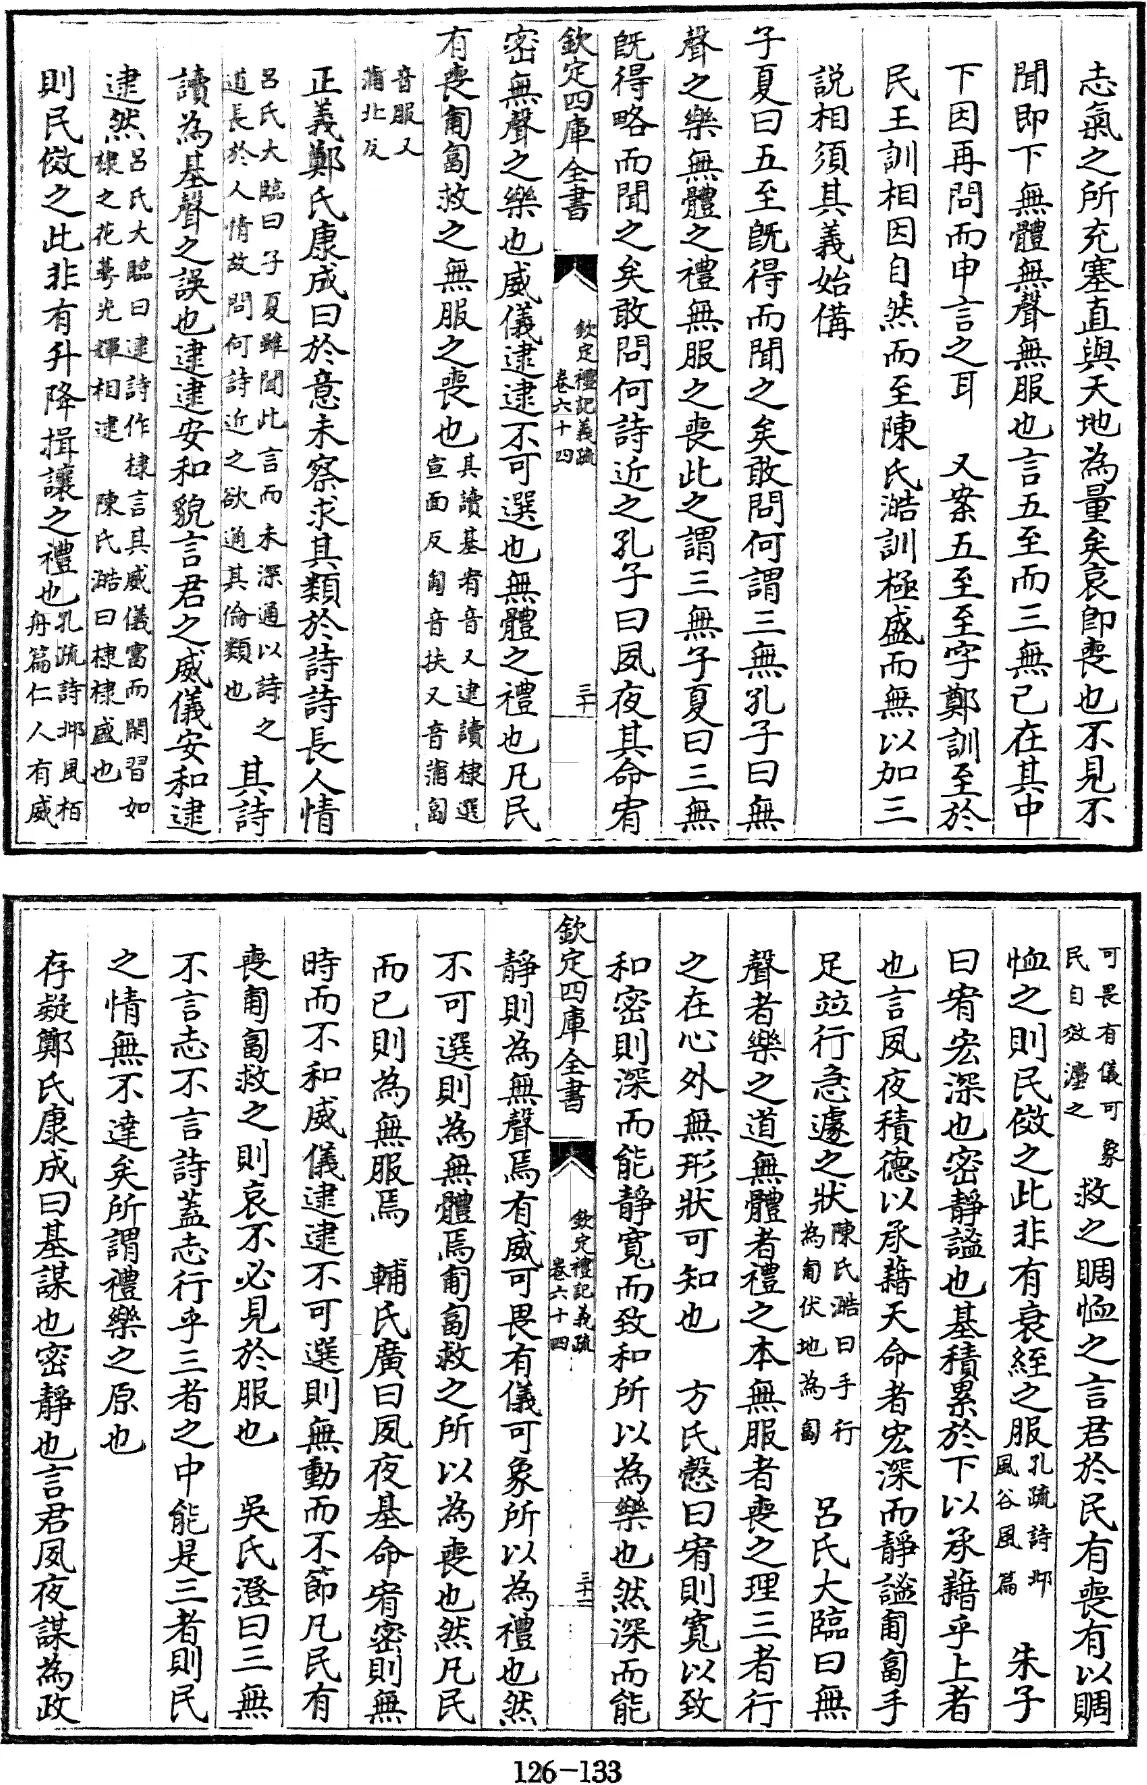 志氣之所充塞直與天地為量矣哀即喪也不見不
聞即下無體無聲無服也言五至而三無已在其中
下因再問而申言之耳　又案五至至字鄭訓至於
民王訓相因自然而至陳氏澔訓極盛而無以加三
説相須其義始備
子夏曰五至旣得而聞之矣敢問何謂三無孔子曰無
聲之樂無體之禮無服之喪此之謂三無子夏曰三無
旣得略而聞之矣敢問何詩近之孔子曰夙夜其命宥
欽定四庫全書
欽定禮記義疏
卷六十四
三十
密無聲之樂也威儀逮逮不可選也無體之禮也凡民
有喪匍匐救之無服之喪也其讀基宥音又逮讀棣選
宣面反匍音扶又音蒲匐
音服又
蒲北反
正義鄭氏康成曰於意未察求其類於詩詩長人情
呂氏大臨曰子夏雖聞此言而未深通以詩之
道長於人情故問何詩近之欲通其倫類也
其詩
讀為基聲之誤也逮逮安和貌言君之威儀安和逮
逮然呂氏大臨曰逮詩作棣言其威儀富而閑習如
棣之花萼光輝相逮　陳氏澔曰棣棣盛也
則民傚之此非有升降揖讓之禮也孔疏詩邶風柏
舟篇仁人有威
可畏有儀可象
民自效灋之
救之賙恤之言君於民有喪有以賙
恤之則民傚之此非有衰絰之服孔疏詩邶
風谷風篇
朱子
曰宥宏深也密靜謐也基積累於下以承藉乎上者
也言夙夜積德以承藉天命者宏深而靜謐匍匐手
足竝行急遽之狀陳氏澔曰手行
為匍伏地為匐
呂氏大臨曰無
聲者樂之道無體者禮之本無服者喪之理三者行
之在心外無形狀可知也　方氏慤曰宥則寬以致
和密則深而能靜寬而致和所以為樂也然深而能
欽定四庫全書
欽定禮記義疏
卷六十四
三十一
靜則為無聲焉有威可畏有儀可象所以為禮也然
不可選則為無體焉匍匐救之所以為喪也然凡民
而已則為無服焉　輔氏廣曰夙夜基命宥密則無
時而不和威儀逮逮不可選則無動而不節凡民有
喪匍匐救之則哀不必見於服也　吳氏澄曰三無
不言志不言詩蓋志行乎三者之中能是三者則民
之情無不達矣所謂禮樂之原也
存疑鄭氏康成曰基謀也密靜也言君夙夜謀為政
126-133